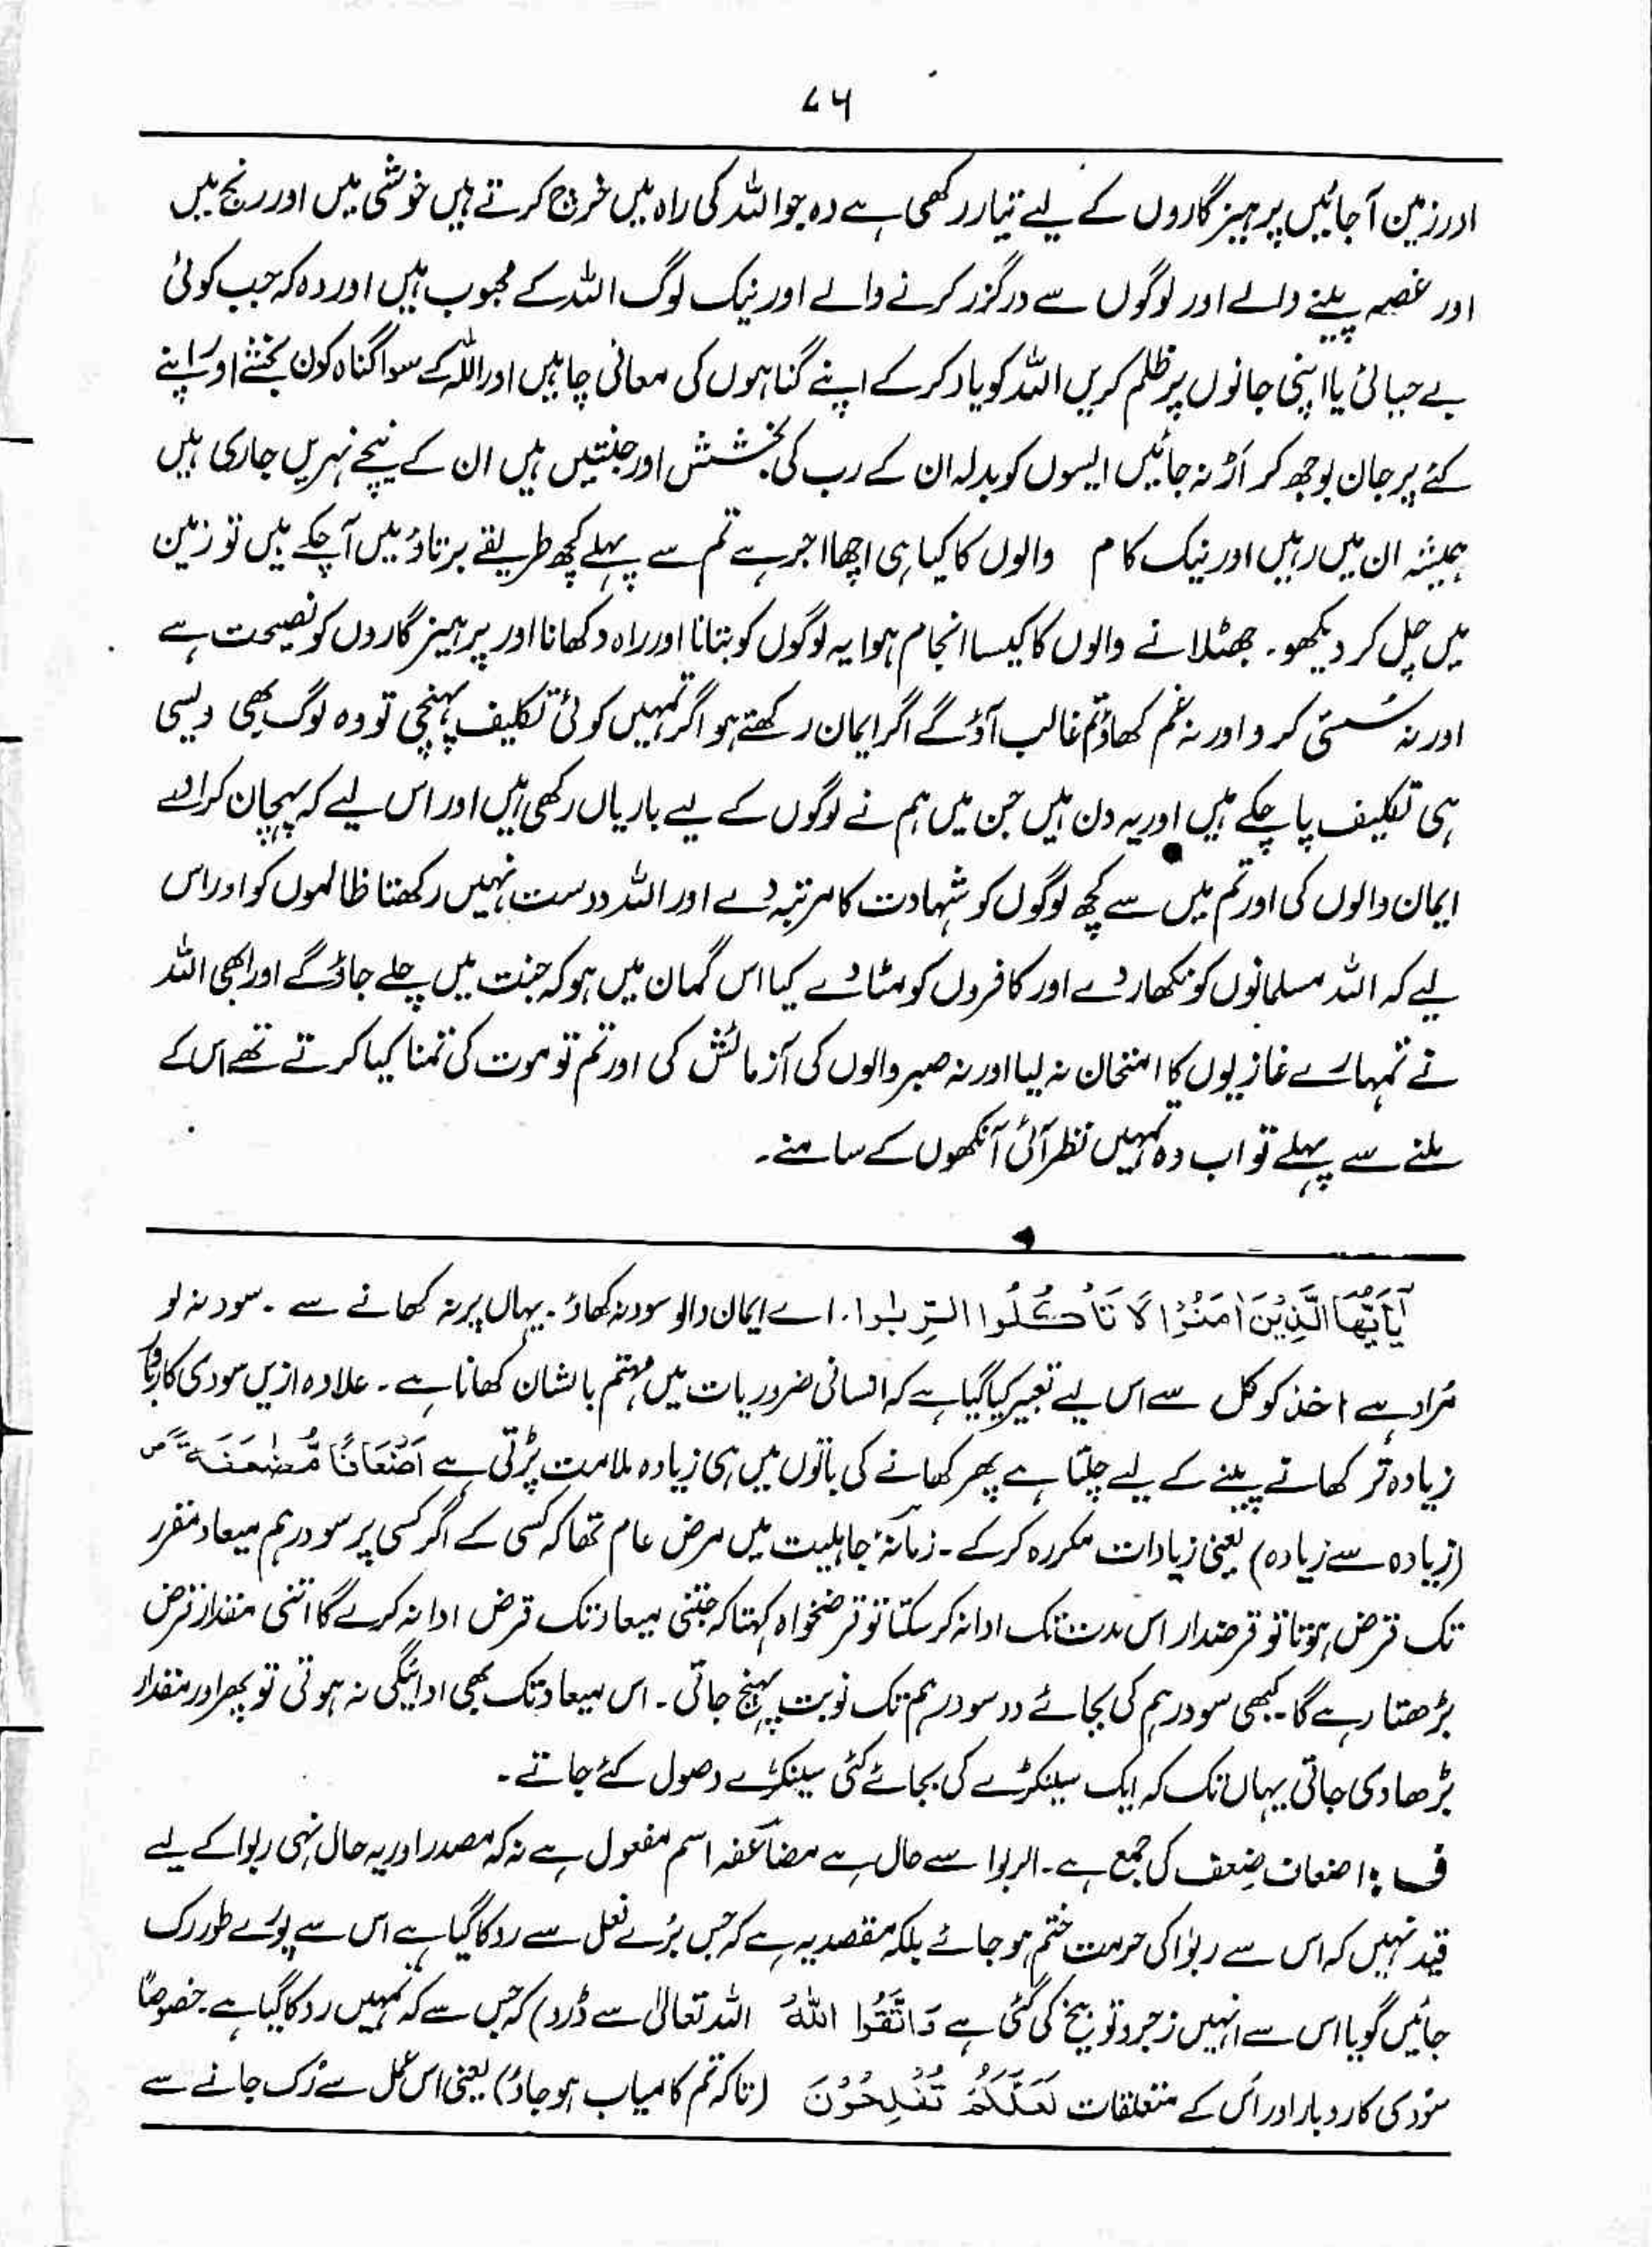 ۷۶
اور زمین آجائیں پرہیزگاروں کے لیے تیار رکھی ہے وہ جو اللہ کی راہ میں خرچ کرتے ہیں خوشی میں اور رنج میں
اور غصہ پینے والے اور لوگوں سے درگزر کرنے والے اور نیک لوگ اللہ کے محبوب ہیں اور وہ کہ جب کوئی
بے حیائی یا اپنی جانوں پر ظلم کریں اللہ کو یاد کر کے اپنے گناہوں کی معافی چاہیں اور اللہ کے سوا گناہ کون بخشے اور اپنے
کئے پر جان بوجھ کر اَڑ نہ جائیں ایسوں کو بدلہ ان کے رب کی بخشش اور جنتیں ہیں ان کے نیچے نہریں جاری ہیں
ہمیشہ ان میں رہیں اور نیک کام والوں کا کیا ہی اچھا اجر ہے تم سے پہلے کچھ طریقے برتاؤ میں آچکے ہیں تو زمین
میں چل کر دیکھو۔ جھٹلانے والوں کا کیسا انجام ہوا یہ لوگوں کو بتانا اور راہ دکھانا اور پرہیزگاروں کو نصیحت ہے
اور نہ سُستی کرو اور نہ غم کھاؤ تم غالب آؤ گے اگر ایمان رکھتے ہو اگر تمہیں کوئی تکلیف پہنچی تو وہ لوگ بھی ویسی
ہی تکلیف پاچکے ہیں اور یہ دن ہیں جن میں ہم نے لوگوں کے لیے باریاں رکھی ہیں اور اس لیے کہ پہچان کرادے
ایمان والوں کی اور تم میں سے کچھ لوگوں کو شہادت کا مرتبہ دے اور اللہ دوست نہیں رکھتا ظالموں کو اور اس
لیے کہ اللہ مسلمانوں کو نکھار دے اور کافروں کو مٹادے کیا اس گمان میں ہو کہ جنت میں چلے جاؤ گے اور ابھی اللہ
نے تمہارے غازیوں کا امتحان نہ لیا اور نہ صبر والوں کی آزمائش کی اور تم تو موت کی تمنا کیا کرتے تھے اس کے
ملنے سے پہلے تو اب وہ تمہیں نظر آئی آنکھوں کے سامنے۔
یٰۤاَیُّهَا الَّذِیْنَ اٰمَنُوْا لَا تَاْكُلُوا الرِّبٰوا۔ اے ایمان والو سود نہ کھاؤ۔ یہاں پر نہ کھانے سے۔ سود نہ لو
مُراد ہے اخذ کو کل سے اس لیے تعبیر کیا گیا ہے کہ انسانی ضروریات میں مہتم بالشان کھانا ہے۔ علاوہ ازیں سودی کاروبار
زیادہ تر کھاتے پینے کے لیے چلتا ہے پھر کھانے کی باتوں میں ہی زیادہ ملامت پڑتی ہے اَضْعَافًا مُّضٰعَفَةً ص
(زیادہ سے زیادہ) یعنی زیادات مکررہ کر کے۔ زمانۂ جاہلیت میں مرض عام تھا کہ کسی کے اگر کسی پر سو درہم میعاد مقرر
تک قرض ہوتا تو قرضدار اس مدت تک ادا نہ کر سکتا تو قرضخواہ کہتا کہ جتنی میعاد تک قرض ادا نہ کرے گا اتنی مقدار قرض
بڑھتا رہے گا۔ کبھی سو درہم کی بجائے دو سو درہم تک نوبت پہنچ جاتی۔ اس میعاد تک بھی ادائیگی نہ ہوتی تو پھر اور مقدار
بڑھا دی جاتی یہاں تک کہ ایک سینکڑے کی بجائے کئی سینکڑے وصول کئے جاتے۔
ف : اضعاف ضِعف کی جمع ہے۔ الربوا سے حال ہے مضاعَفہ اسم مفعول ہے نہ کہ مصدر اور یہ حال نہی ربوا کے لیے
قید نہیں کہ اس سے ربوٰا کی حرمت ختم ہو جائے بلکہ مقصد یہ ہے کہ جس بُرے فعل سے روکا گیا ہے اس سے پورے طور رک
جائیں گویا اس سے انہیں زجر و توبیخ کی گئی ہے وَاتَّقُوا اللهَ اللہ تعالیٰ سے ڈرو) کہ جس سے کہ تمہیں روکا گیا ہے۔ خصوصاً
سُودی کاروبار اور اُس کے متعلقات لَعَلَّكُمْ تُفْلِحُوْنَ (تاکہ تم کامیاب ہو جاؤ) یعنی اس عمل سے رُک جانے سے